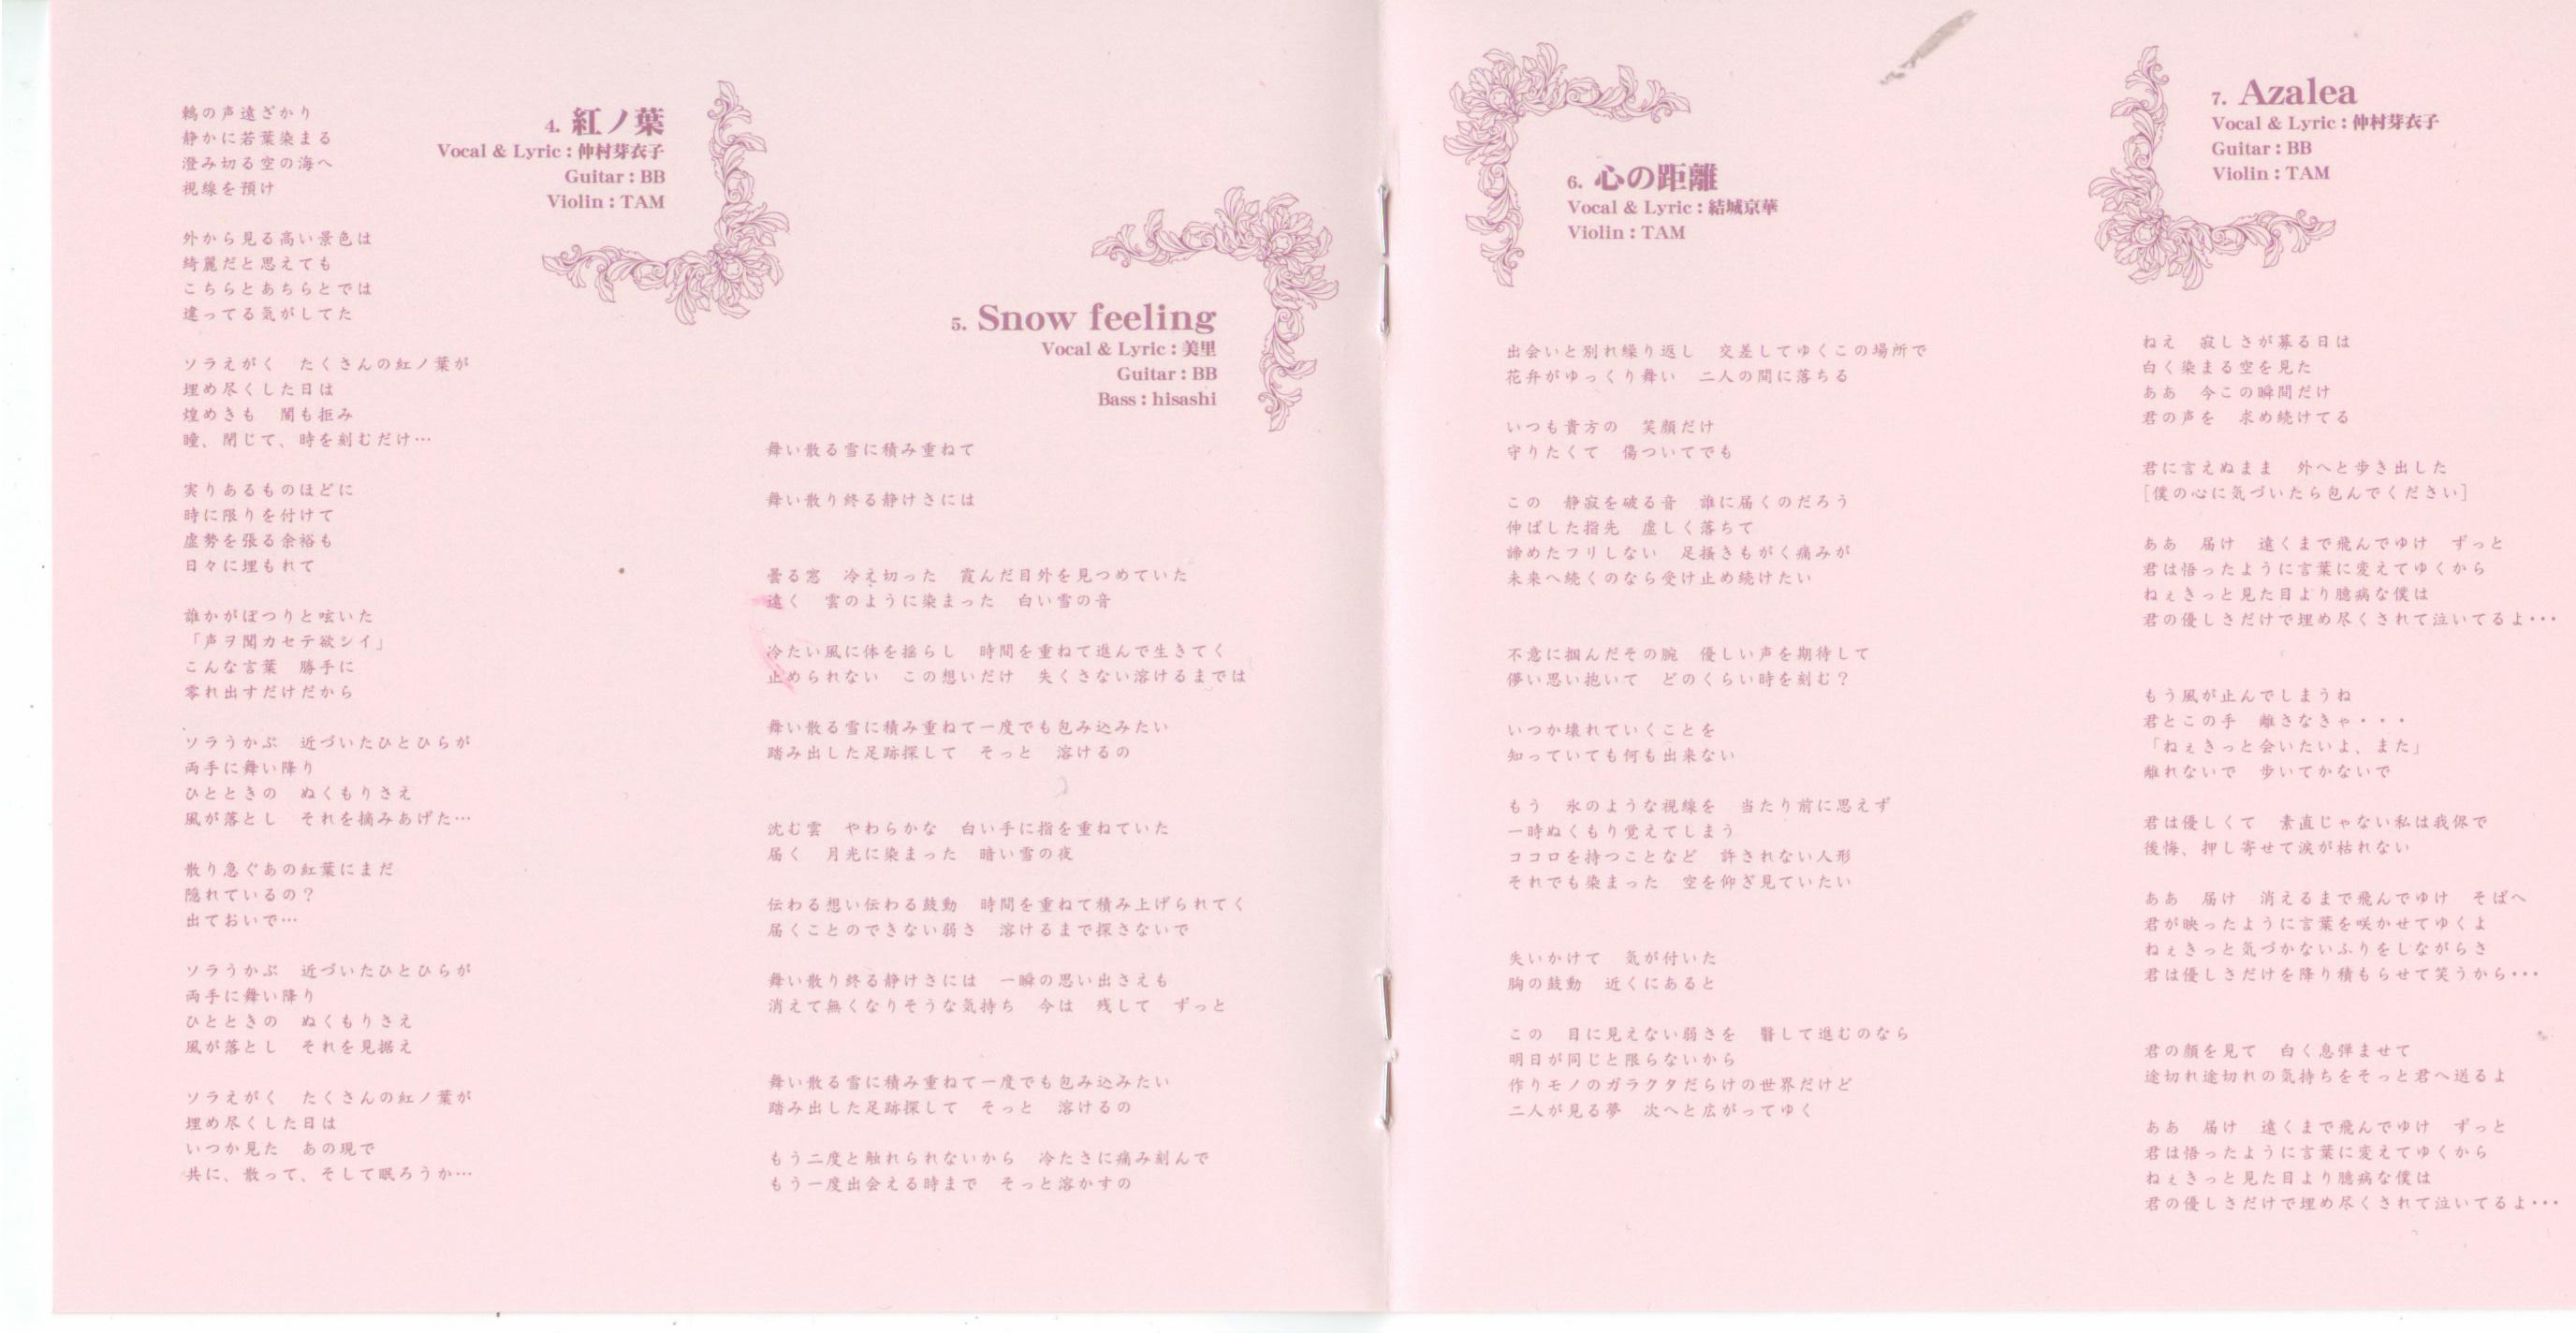 4. 紅ノ葉
Vocal & Lyric：仲村芽衣子
Guitar：BB
Violin：TAM
鶫の声遠ざかり
静かに若葉染まる
澄み切る空の海へ
視線を預け
外から見る高い景色は
綺麗だと思えても
こちらとあちらとでは
違ってる気がしてた
ソラえがく　たくさんの紅ノ葉が
埋め尽くした日は
煌めきも　闇も拒み
瞳、閉じて、時を刻むだけ…
実りあるものほどに
時に限りを付けて
虚勢を張る余裕も
日々に埋もれて
誰かがぽつりと呟いた
「声ヲ聞カセテ欲シイ」
こんな言葉　勝手に
零れ出すだけだから
ソラうかぶ　近づいたひとひらが
両手に舞い降り
ひとときの　ぬくもりさえ
風が落とし　それを摘みあげた…
散り急ぐあの紅葉にまだ
隠れているの？
出ておいで…
ソラうかぶ　近づいたひとひらが
両手に舞い降り
ひとときの　ぬくもりさえ
風が落とし　それを見据え
ソラえがく　たくさんの紅ノ葉が
埋め尽くした日は
いつか見た　あの現で
共に、散って、そして眠ろうか…
5. Snow feeling
Vocal & Lyric：美里
Guitar：BB
Bass：hisashi
舞い散る雪に積み重ねて
舞い散り終る静けさには
曇る窓　冷え切った　霞んだ目外を見つめていた
遠く　雲のように染まった　白い雪の音
冷たい風に体を揺らし　時間を重ねて進んで生きてく
止められない　この想いだけ　失くさない溶けるまでは
舞い散る雪に積み重ねて一度でも包み込みたい
踏み出した足跡探して　そっと　溶けるの
沈む雲　やわらかな　白い手に指を重ねていた
届く　月光に染まった　暗い雪の夜
伝わる想い伝わる鼓動　時間を重ねて積み上げられてく
届くことのできない弱さ　溶けるまで探さないで
舞い散り終る静けさには　一瞬の思い出さえも
消えて無くなりそうな気持ち　今は　残して　ずっと
舞い散る雪に積み重ねて一度でも包み込みたい
踏み出した足跡探して　そっと　溶けるの
もう二度と触れられないから　冷たさに痛み刻んで
もう一度出会える時まで　そっと溶かすの
6. 心の距離
Vocal & Lyric：結城京華
Violin：TAM
出会いと別れ繰り返し　交差してゆくこの場所で
花弁がゆっくり舞い　二人の間に落ちる
いつも貴方の　笑顔だけ
守りたくて　傷ついてでも
この　静寂を破る音　誰に届くのだろう
伸ばした指先　虚しく落ちて
諦めたフリしない　足掻きもがく痛みが
未来へ続くのなら受け止め続けたい
不意に掴んだその腕　優しい声を期待して
儚い思い抱いて　どのくらい時を刻む？
いつか壊れていくことを
知っていても何も出来ない
もう　氷のような視線を　当たり前に思えず
一時ぬくもり覚えてしまう
ココロを持つことなど　許されない人形
それでも染まった　空を仰ぎ見ていたい
失いかけて　気が付いた
胸の鼓動　近くにあると
この　目に見えない弱さを　翳して進むのなら
明日が同じと限らないから
作りモノのガラクタだらけの世界だけど
二人が見る夢　次へと広がってゆく
7. Azalea
Vocal & Lyric：仲村芽衣子
Guitar：BB
Violin：TAM
ねえ　寂しさが募る日は
白く染まる空を見た
ああ　今この瞬間だけ
君の声を　求め続けてる
君に言えぬまま　外へと歩き出した
[僕の心に気づいたら包んでください]
ああ　届け　遠くまで飛んでゆけ　ずっと
君は悟ったように言葉に変えてゆくから
ねぇきっと見た目より臆病な僕は
君の優しさだけで埋め尽くされて泣いてるよ･･･
もう風が止んでしまうね
君とこの手　離さなきゃ・・・
「ねぇきっと会いたいよ、また」
離れないで　歩いてかないで
君は優しくて　素直じゃない私は我侭で
後悔、押し寄せて涙が枯れない
ああ　届け　消えるまで飛んでゆけ　そばへ
君が映ったように言葉を咲かせてゆくよ
ねぇきっと気づかないふりをしながらさ
君は優しさだけを降り積もらせて笑うから･･･
君の顔を見て　白く息弾ませて
途切れ途切れの気持ちをそっと君へ送るよ
ああ　届け　遠くまで飛んでゆけ　ずっと
君は悟ったように言葉に変えてゆくから
ねぇきっと見た目より臆病な僕は
君の優しさだけで埋め尽くされて泣いてるよ･･･